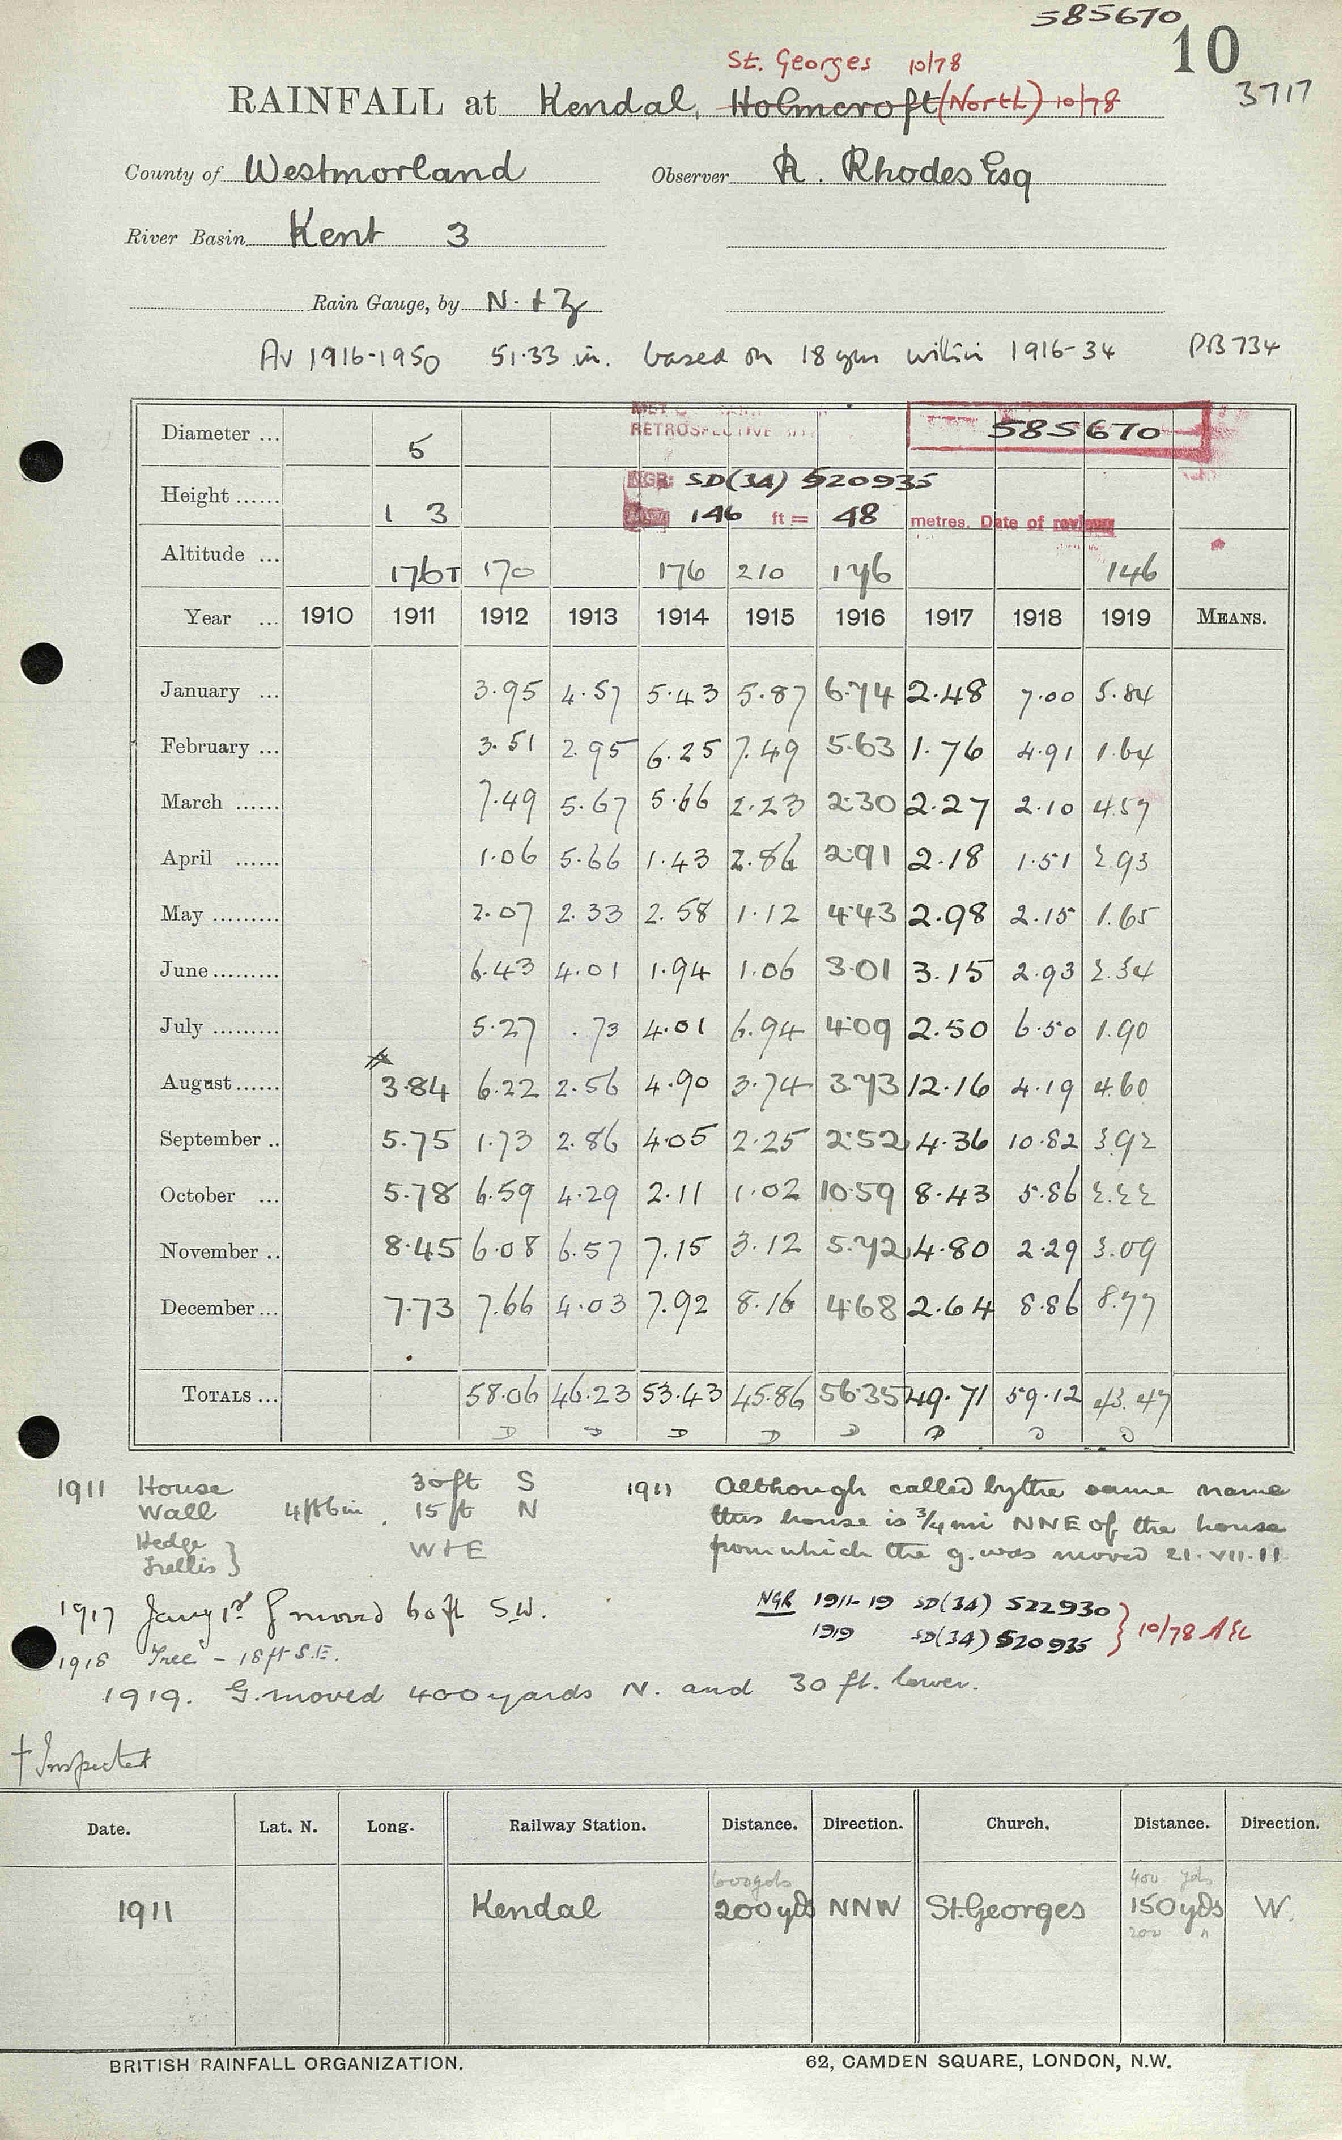 585670
10
3717
St. Georges 10/78
RAINFALL at Kendal, Holmcroft (North) 10/78
County of Westmorland Observer R. Rhodes Esq
River Basin Kent 3
Rain Gauge, by N. + Z
Av 1916-1950 51.33 in. based on 18 yrs within 1916-34 PB 734
RETROSPECTIVE
Diameter ... 5 585670
NGR: SD(34) 520935
Height ...... 1 3 146 ft = 48 metres. Date of review
Altitude ... 176T 170 176 210 146 146
Year ... 1910 1911 1912 1913 1914 1915 1916 1917 1918 1919 MEANS.
January ... 3.95 4.57 5.43 5.87 6.74 2.48 7.00 5.84
February ... 3.51 2.95 6.25 7.49 5.63 1.76 4.91 1.64
March ...... 7.49 5.67 5.66 2.23 2.30 2.27 2.10 4.57
April ...... 1.06 5.66 1.43 2.86 2.91 2.18 1.51 2.93
May ......... 2.07 2.33 2.58 1.12 4.43 2.98 2.15 1.65
June ......... 6.43 4.01 1.94 1.06 3.01 3.15 2.93 2.34
July ......... 5.27 .73 4.01 6.94 4.09 2.50 6.50 1.90
August...... 3.84 6.22 2.56 4.90 3.74 3.73 12.16 4.19 4.60
September .. 5.75 1.73 2.86 4.05 2.25 2.52 4.36 10.82 3.92
October ... 5.78 6.59 4.29 2.11 1.02 10.59 8.43 5.86 2.22
November .. 8.45 6.08 6.57 7.15 3.12 5.72 4.80 2.29 3.09
December ... 7.73 7.66 4.03 7.92 8.16 4.68 2.64 8.86 8.77
TOTALS ... 58.06 46.23 53.43 45.86 56.35 49.71 59.12 43.47
D D D D D D D D
1911 House 30ft S
Wall 4ft6in. 15ft N
Hedge
Trellis } W+E
1911 Although called by the same name
this house is 3/4 mi NNE of the house
from which the g. was moved 21.VII.11
1917 Jany 1st G moved 60ft SW.
1918 Tree - 18ft S.E.
NGR 1911-19 SD(34) 522930
1919 SD(34) 520935 } 10/78
1919. G. moved 400 yards N. and 30 ft. lower.
† Inspected
Date. Lat. N. Long. Railway Station. Distance. Direction. Church. Distance. Direction.
600yds 400 yds
1911 Kendal 200yds NNW St.Georges 150yds W.
200 "
BRITISH RAINFALL ORGANIZATION. 62, CAMDEN SQUARE, LONDON, N.W.